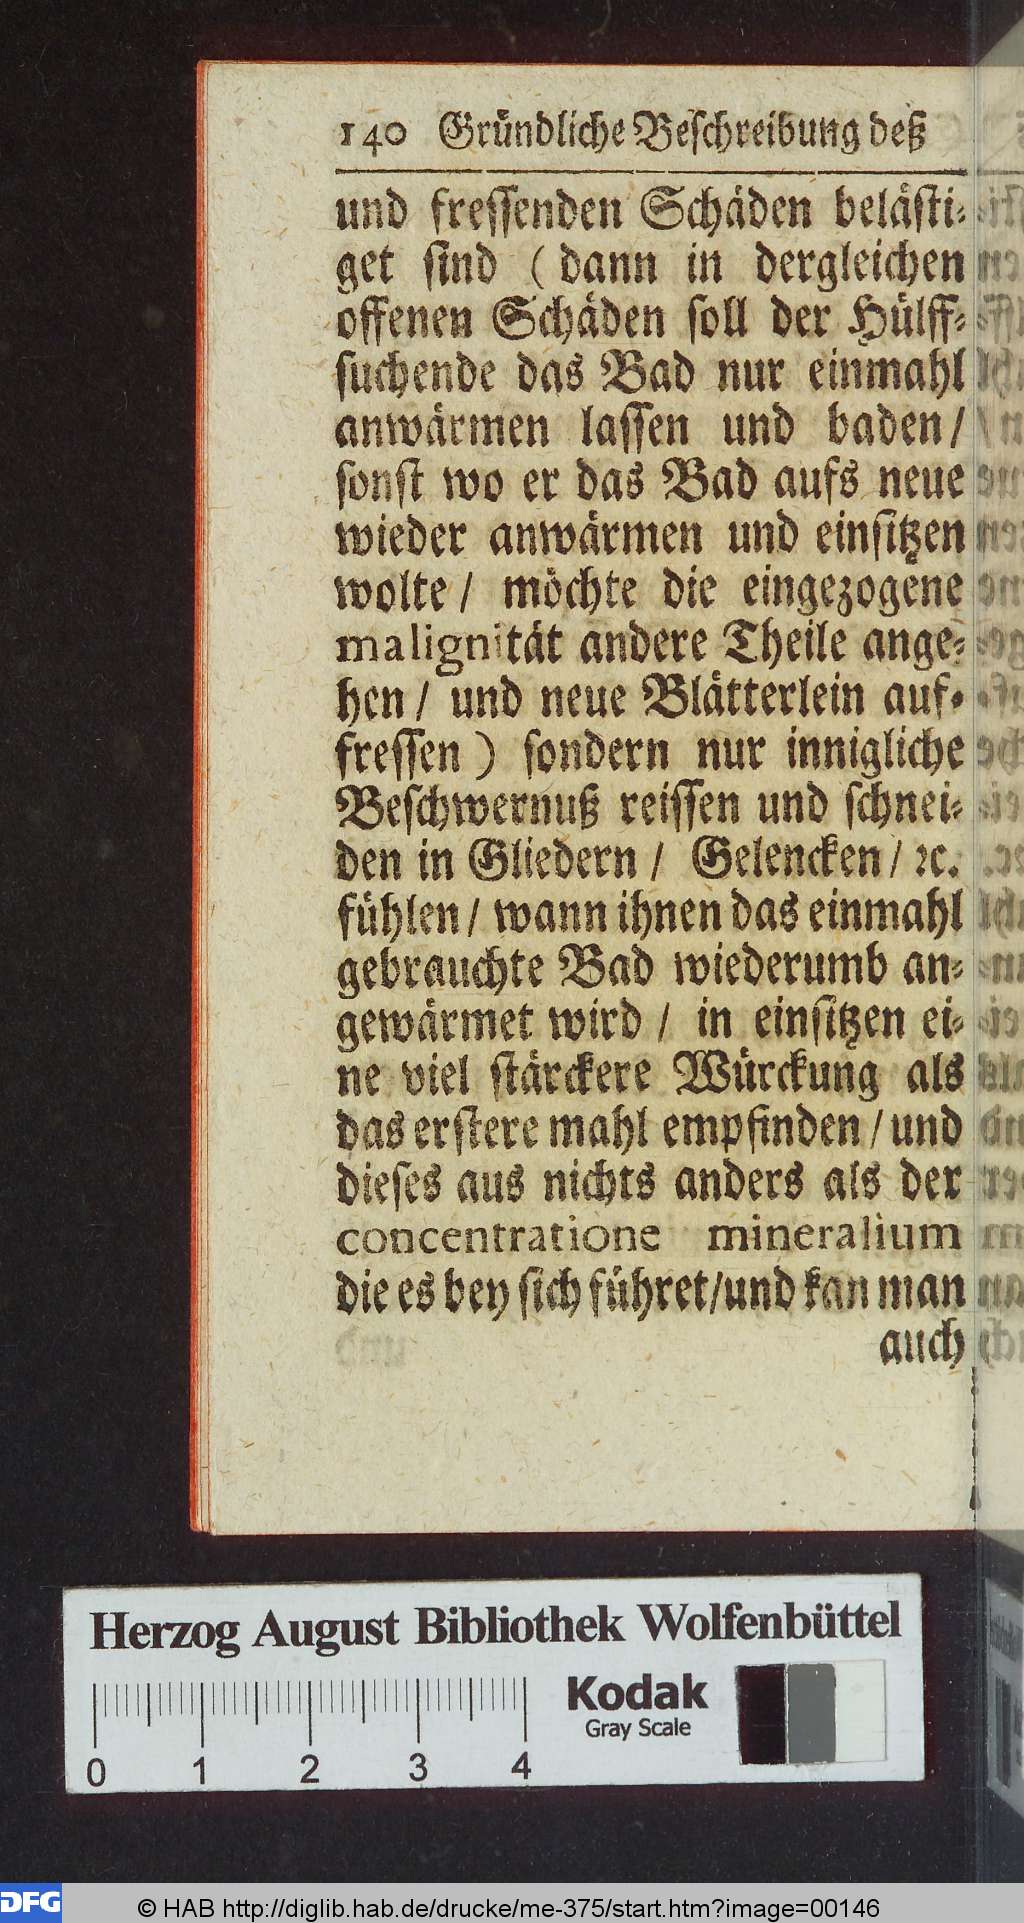 140 Gründliche Beschreibung deß
und fressenden Schäden belästi-
get sind (dann in dergleichen
offenen Schäden soll der Hülff-
suchende das Bad nur einmahl
anwärmen lassen und baden/
sonst wo er das Bad aufs neue
wieder anwärmen und einsitzen
wolte/ möchte die eingezogene
malignität andere Theile ange-
hen/ und neue Blätterlein auf-
fressen) sondern nur innigliche
Beschwernuß reissen und schnei-
den in Gliedern/ Gelencken/ ꝛc.
fühlen/ wann ihnen das einmahl
gebrauchte Bad wiederumb an-
gewärmet wird/ in einsitzen ei-
ne viel stärckere Würckung als
das erstere mahl empfinden/ und
dieses aus nichts anders als der
concentratione mineralium
die es bey sich führet/und kan man
auch
Herzog August Bibliothek Wolfenbüttel
Kodak
Gray Scale
0 1 2 3 4
DFG © HAB http://diglib.hab.de/drucke/me-375/start.htm?image=00146